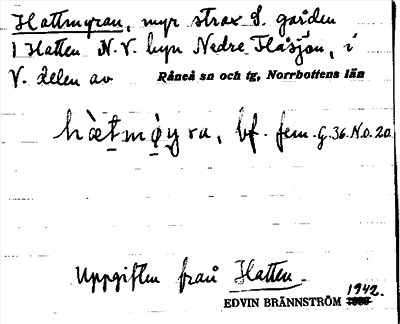 Hattmyran, myr strax S. gården
1 Hatten N.V. byn Nedre Flåsjön, i
V. delen av Råneå sn och tg, Norrbottens län
hàtmỳra, bf. fem. G. 36. N.o. 20
Uppgiften från Hatten.
1942.
EDVIN BRÄNNSTRÖM